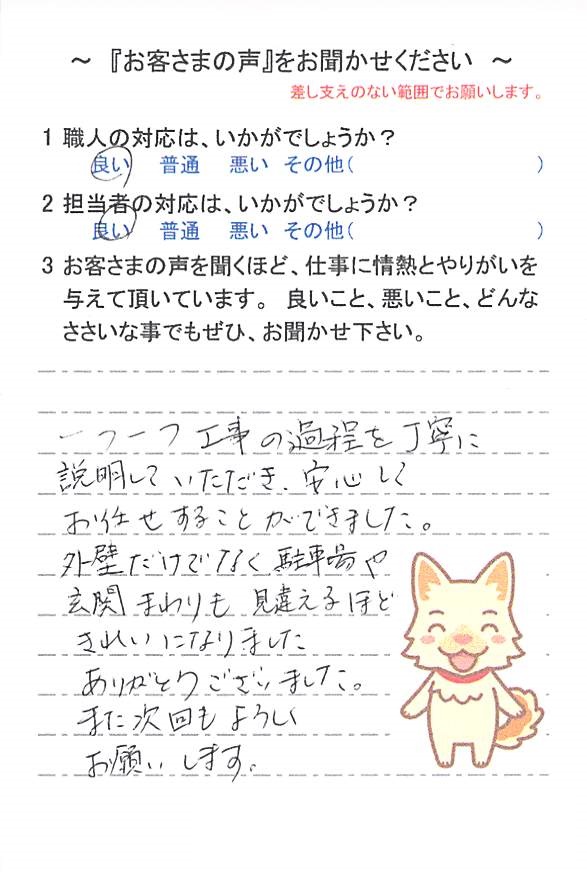 ～ 『お客さまの声』をお聞かせください ～
差し支えのない範囲でお願いします。
1 職人の対応は、いかがでしょうか？
良い 普通 悪い その他( )
2 担当者の対応は、いかがでしょうか？
良い 普通 悪い その他( )
3 お客さまの声を聞くほど、仕事に情熱とやりがいを
与えて頂いています。 良いこと、悪いこと、どんな
ささいな事でもぜひ、お聞かせ下さい。
一つ一つ工事の過程を丁寧に
説明していただき、安心して
お任せすることができました。
外壁だけでなく駐車場や
玄関まわりも見違えるほど
きれいになりました
ありがとうございました。
また次回もよろしく
お願いします。